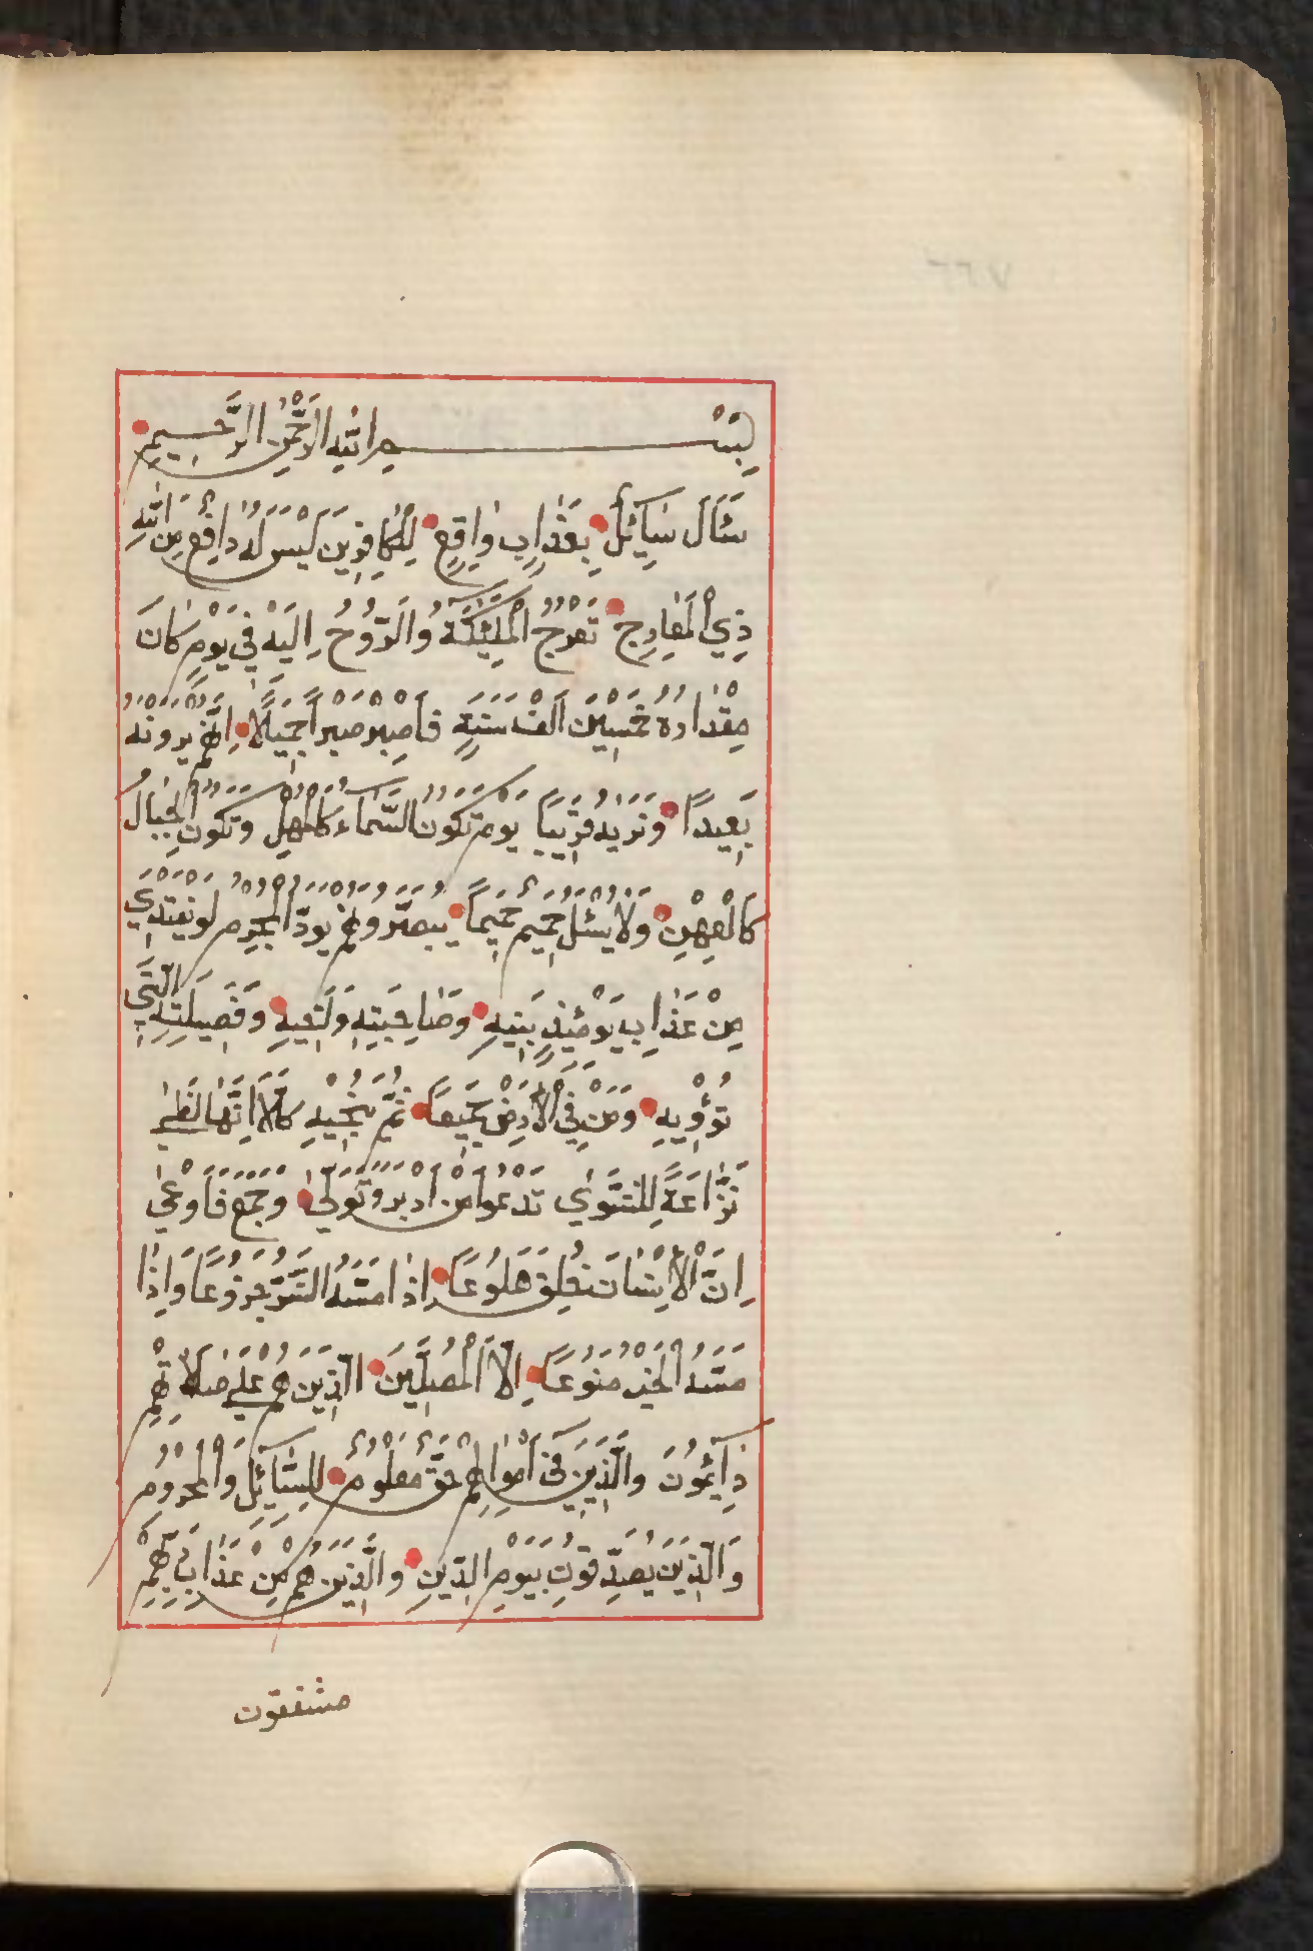 بِسْمِ اللهِ الرَّحْمٰنِ الرَّحِيمِ
سَئَالَ سَايِٕلٌ بِعَذَابٍ وَاقِعٍ لِلْكَافِرِينَ لَيْسَ لَهُ دَافِعٌ مِنَ اللهِ
ذِي الْمَعَارِجِ تَعْرُجُ الْمَلٰئِكَةُ وَالرُّوحُ اِلَيْهِ فِي يَوْمٍ كَانَ
مِقْدَارُهُ خَمْسِينَ اَلْفَ سَنَةٍ فَاصْبِرْ صَبْرًا جَمِيلًا اِنَّهُمْ يَرَوْنَهُ
بَعِيدًا وَنَرٰيهُ قَرِيبًا يَوْمَ تَكُونُ السَّمَاءُ كَالْمُهْلِ وَتَكُونُ الْجِبَالُ
كَالْعِهْنِ وَلَا يَسْئَلُ حَمِيمٌ حَمِيمًا يُبَصَّرُونَهُمْ يَوَدُّ الْمُجْرِمُ لَوْ يَفْتَدِي
مِنْ عَذَابِ يَوْمَئِذٍ بِبَنِيهِ وَصَاحِبَتِهِ وَاَخِيهِ وَفَصِيلَتِهِ الَّتِي
تُؤْوِيهِ وَمَنْ فِي الْاَرْضِ جَمِيعًا ثُمَّ يُنْجِيهِ كَلَّا اِنَّهَا لَظٰى
نَزَّاعَةً لِلشَّوٰي تَدْعُوا مَنْ اَدْبَرَ وَتَوَلّٰى وَجَمَعَ فَاَوْعٰى
اِنَّ الْاِنْسَانَ خُلِقَ هَلُوعًا اِذَا مَسَّهُ الشَّرُّ جَزُوعًا وَاِذَا
مَسَّهُ الْخَيْرُ مَنُوعًا اِلَّا الْمُصَلِّينَ الَّذِينَ هُمْ عَلٰى صَلَاتِهِمْ
دَايِٕمُونَ وَالَّذِينَ فِي اَمْوَالِهِمْ حَقٌّ مَعْلُومٌ لِلسَّايِٕلِ وَالْمَحْرُومِ
وَالَّذِينَ يُصَدِّقُونَ بِيَوْمِ الدِّينِ وَالَّذِينَ هُمْ مِنْ عَذَابِ رَبِّهِمْ
مشفقون